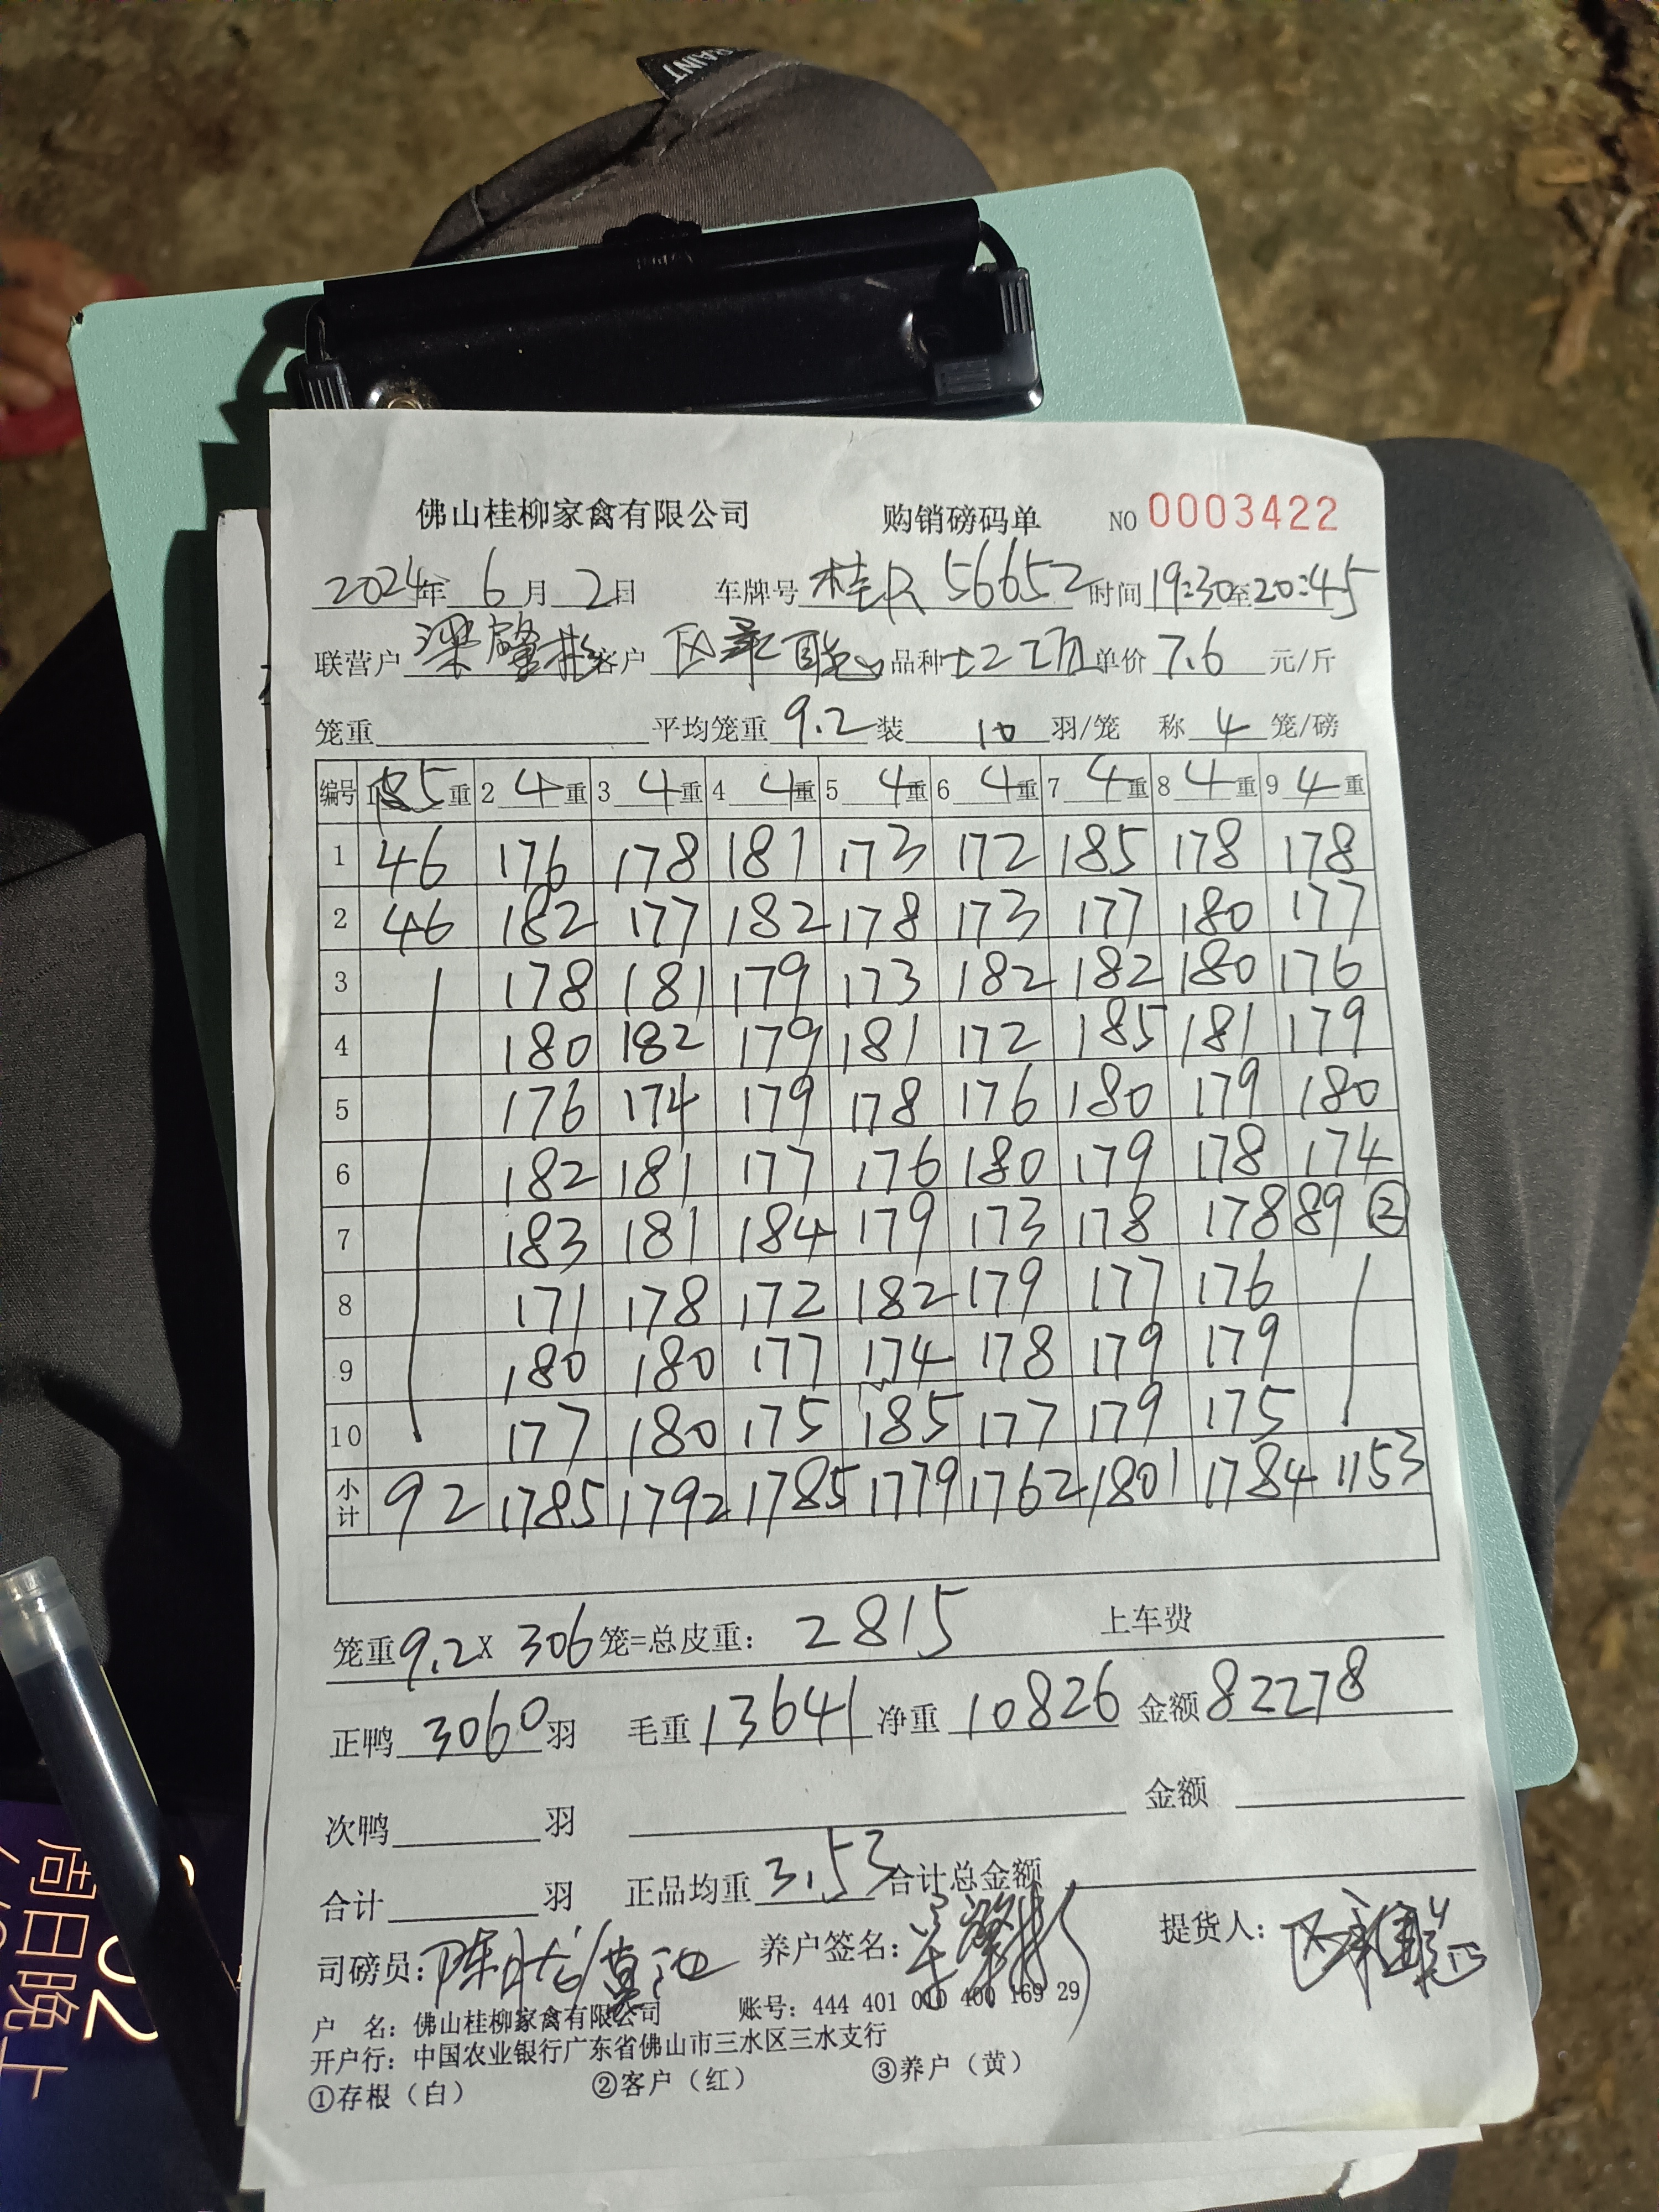 RAINT
佛山桂柳家禽有限公司 购销磅码单 NO 0003422
2024年 6月 2日 车牌号 桂R 56652 时间 19:30至20:45
联营户 梁肇彬 客户 品种 单价 7.6 元/斤
笼重 平均笼重 9.2 装 10 羽/笼 称 4 笼/磅
编号 1 5重 2 4重 3 4重 4 4重 5 4重 6 4重 7 4重 8 4重 9 4重
1 46 176 178 181 173 172 185 178 178
2 46 182 177 182 178 173 177 180 177
3 178 181 179 173 182 182 180 176
4 180 182 179 181 172 185 181 179
5 176 174 179 178 176 180 179 180
6 182 181 177 176 180 179 178 174
7 183 181 184 179 173 178 178 89 ②
8 171 178 172 182 179 177 176
9 180 180 177 174 178 179 179
10 177 180 175 185 177 179 175
小计 92 1785 1792 1785 1779 1762 1801 1784 1153
笼重9.2X 306笼=总皮重： 2815 上车费
正鸭 3060 羽 毛重 13641 净重 10826 金额 82278
次鸭 羽 金额
合计 羽 正品均重 3.53 合计总金额
司磅员： 养户签名： 提货人：
户 名：佛山桂柳家禽有限公司 账号：444 401 010 400 169 29
开户行：中国农业银行广东省佛山市三水区三水支行
①存根（白） ②客户（红） ③养户（黄）
02
周日晚上